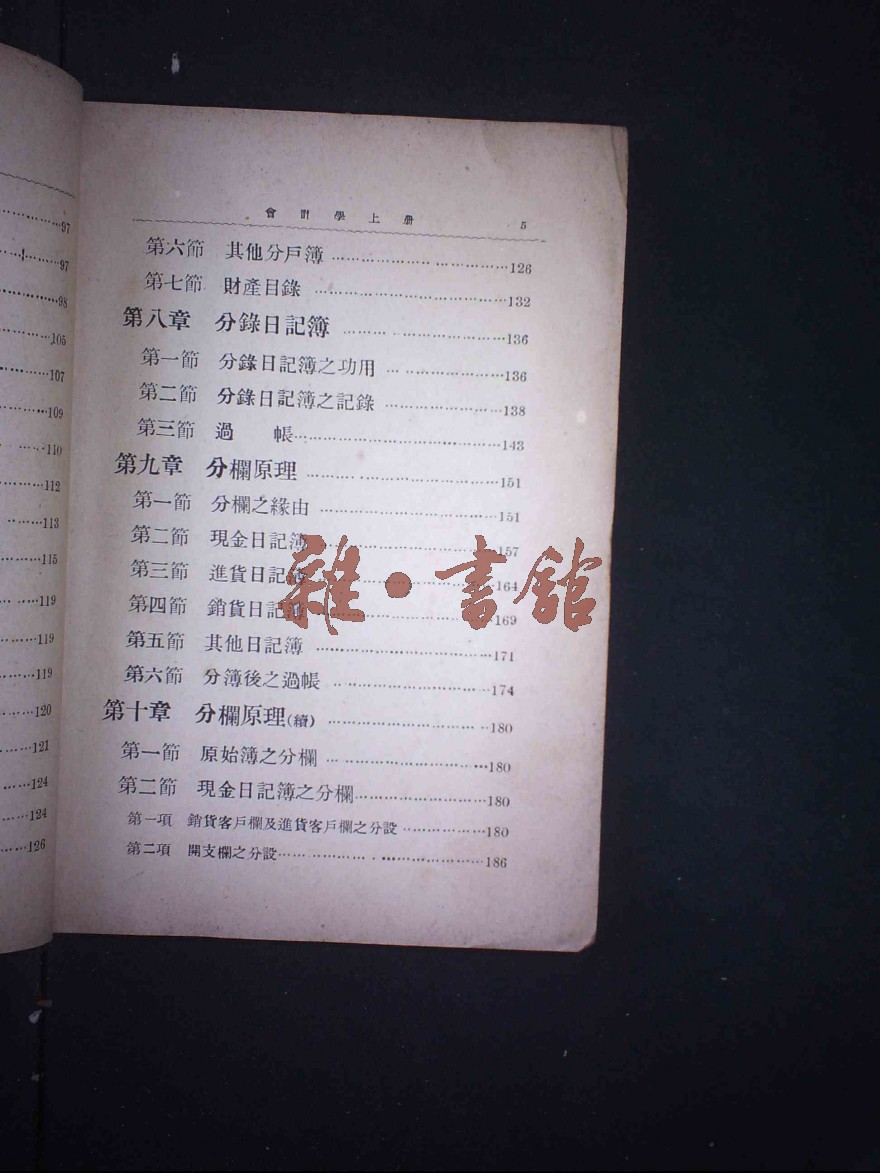 97
97
98
105
107
109
110
112
113
115
119
119
119
120
121
124
124
126
會計學上册 5
第六節 其他分戶簿……………………………126
第七節 財產目錄……………………………132
第八章 分錄日記簿……………………………136
第一節 分錄日記簿之功用……………………136
第二節 分錄日記簿之記錄……………………138
第三節 過 帳……………………………143
第九章 分欄原理……………………………151
第一節 分欄之緣由……………………………151
第二節 現金日記簿……………………………157
第三節 進貨日記簿……………………………164
第四節 銷貨日記簿……………………………169
第五節 其他日記簿……………………………171
第六節 分簿後之過帳……………………………174
第十章 分欄原理(續)……………………………180
第一節 原始簿之分欄……………………………180
第二節 現金日記簿之分欄……………………180
第一項 銷貨客戶欄及進貨客戶欄之分設……………180
第二項 開支欄之分設……………………………186
雜·書館